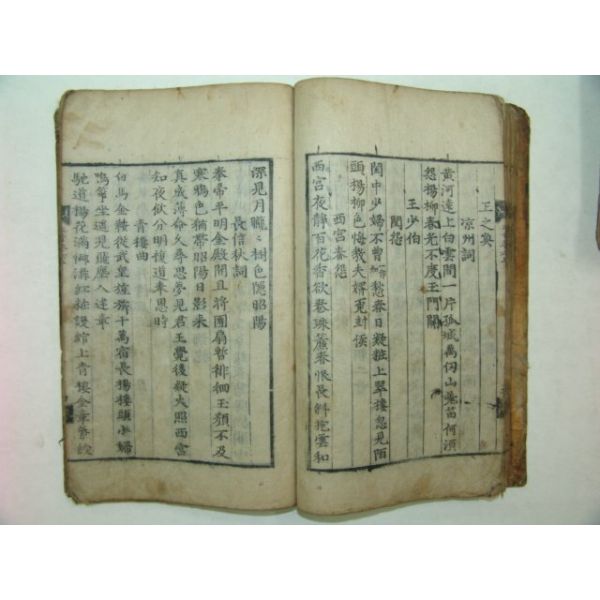 王之奐
凉州詞
黃河遠上白雲間一片孤城萬仞山羌笛何須
怨楊柳春光不度玉門關
王少伯
閨怨
閨中少婦不曾愁春日凝粧上翠樓忽見陌
頭楊柳色悔敎夫婿覓封侯
西宮春怨
西宮夜靜百花香欲捲珠簾春恨長斜抱雲和
深見月朧〻樹色隱昭陽
長信秋詞
奉帚平明金殿開且將團扇暫徘徊玉顔不及
寒鴉色猶帶昭陽日影來
真成薄命久尋思夢見君王覺後疑火照西宮
知夜飮分明複道奉恩時
青樓曲
白馬金鞍從武皇旌旂十萬宿長楊樓頭小婦
鳴箏坐遙見飛塵入建章
馳道楊花滿御溝紅粧謾綰上青樓金章紫綬